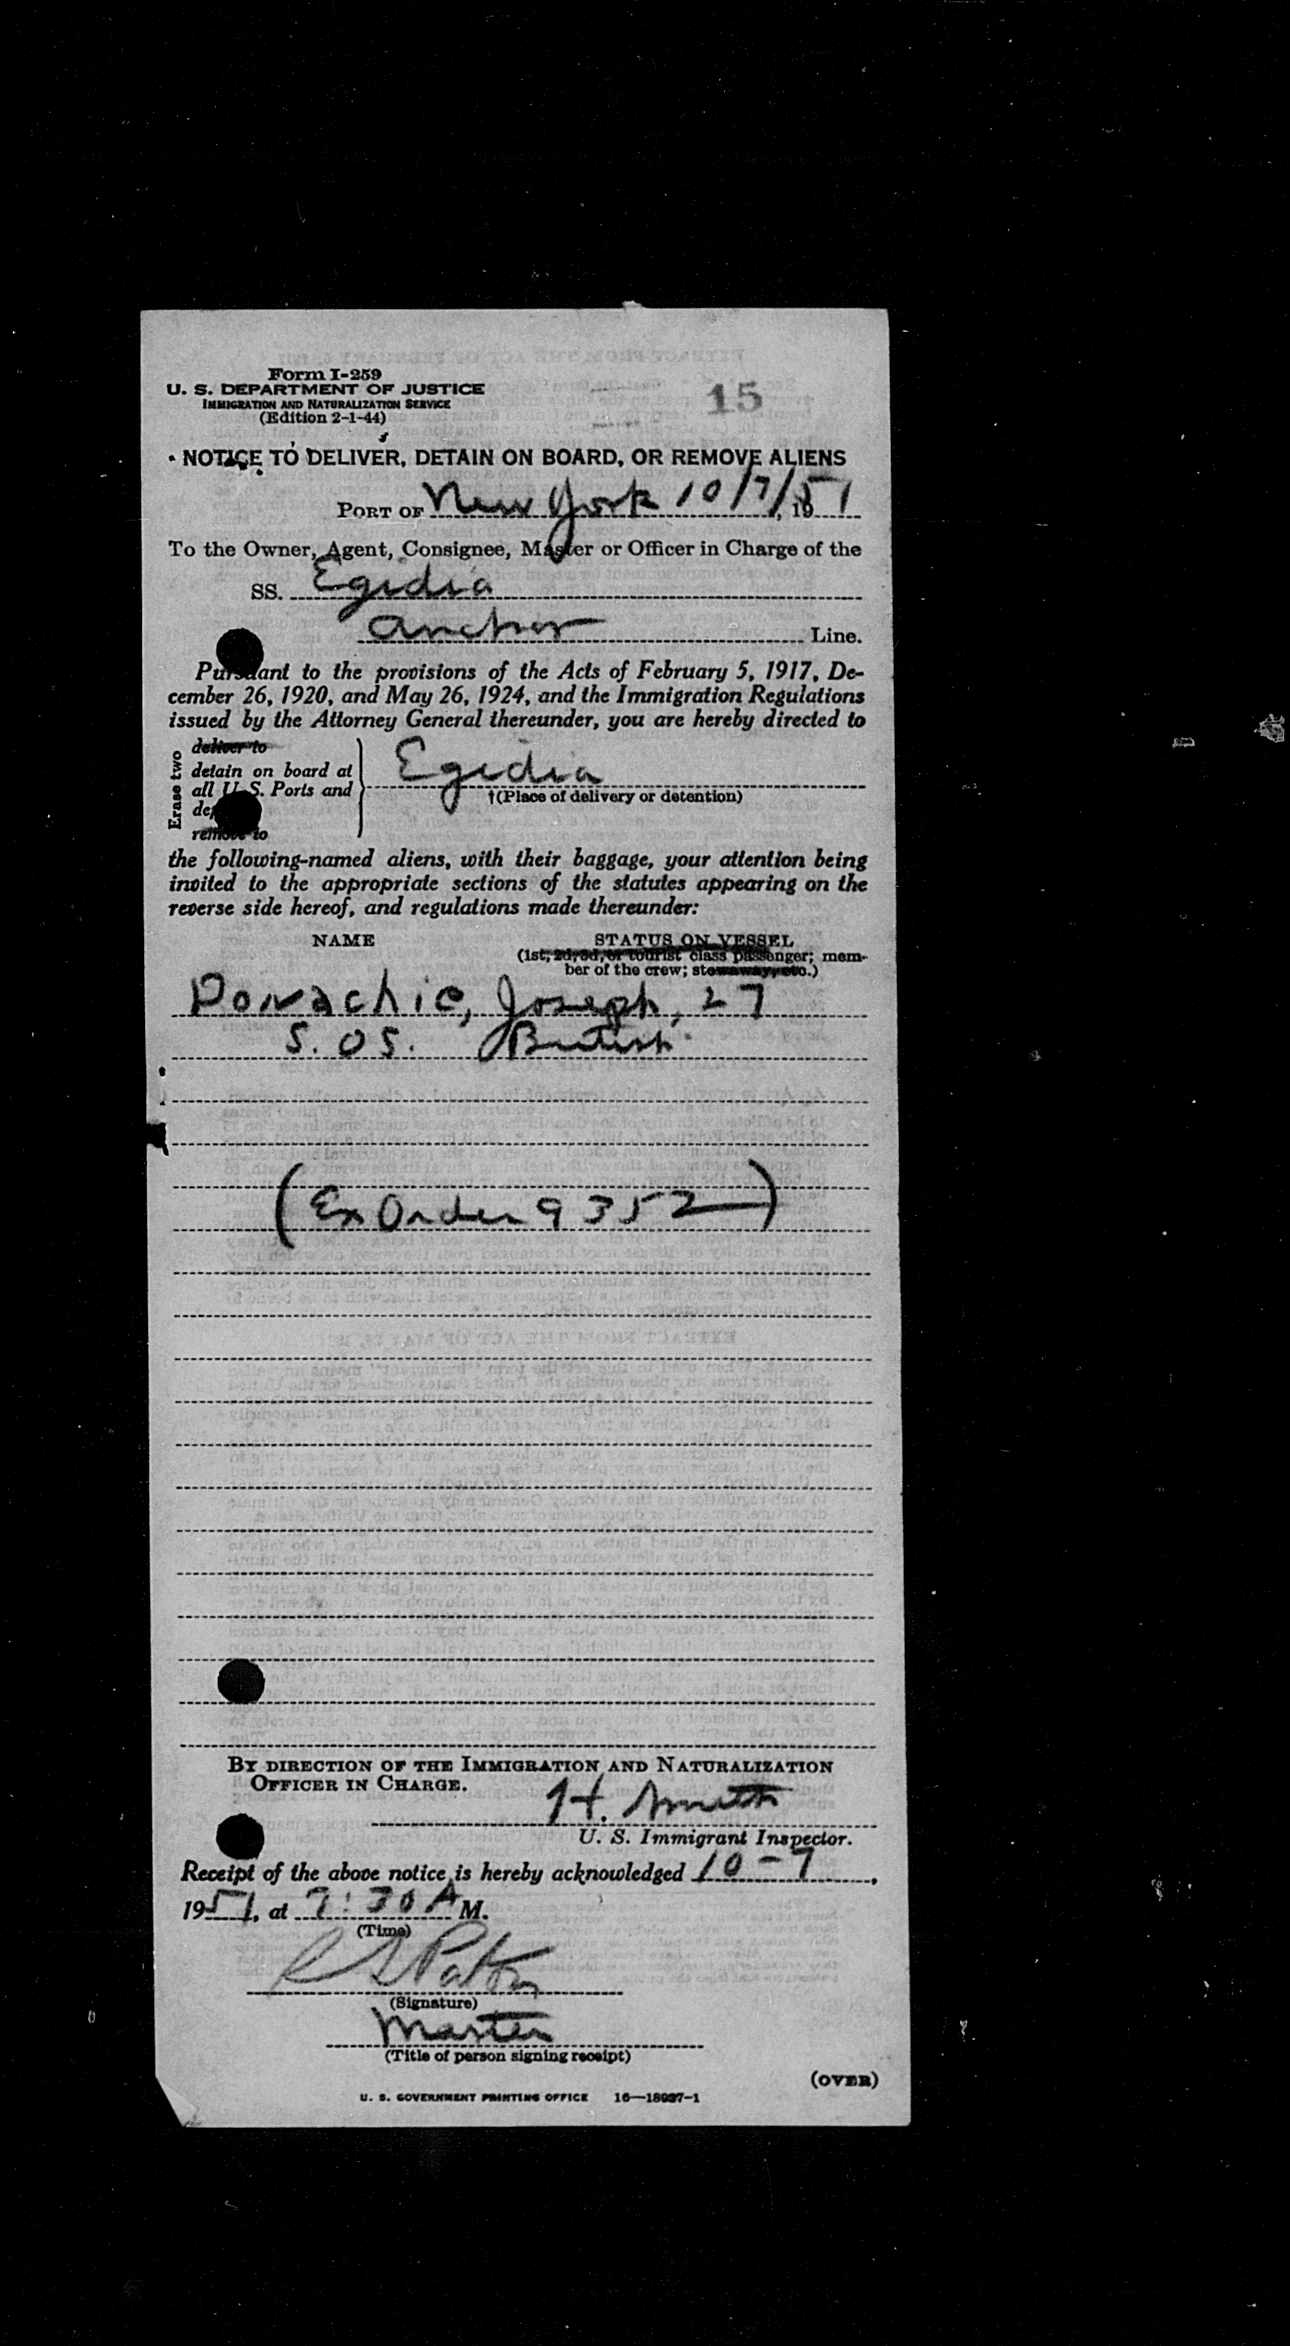 Form I-259
U. S. DEPARTMENT OF JUSTICE
IMMIGRATION AND NATURALIZATION SERVICE
(Edition 2-1-44)
15
NOTICE TO DELIVER, DETAIN ON BOARD, OR REMOVE ALIENS
PORT OF New York 10/7/, 1951
To the Owner, Agent, Consignee, Master or Officer in Charge of the
SS. Egidia
Anchor Line.
Pursuant to the provisions of the Acts of February 5, 1917, De-
cember 26, 1920, and May 26, 1924, and the Immigration Regulations
issued by the Attorney General thereunder, you are hereby directed to
Erase two
deliver to
detain on board at
all U. S. Ports and
remove to
Egidia
†(Place of delivery or detention)
the following-named aliens, with their baggage, your attention being
invited to the appropriate sections of the statutes appearing on the
reverse side hereof, and regulations made thereunder:
NAME STATUS ON VESSEL
(1st, 2d, 3d, or tourist class passenger; mem-
ber of the crew; stowaway, etc.)
Donachie, Joseph, 27
S. OS. British
(Ex Order 9352)
BY DIRECTION OF THE IMMIGRATION AND NATURALIZATION
OFFICER IN CHARGE.
H. Smith
U. S. Immigrant Inspector.
Receipt of the above notice is hereby acknowledged 10-7,
1951, at 7:30 A M.
(Time)
Patton
(Signature)
Master
(Title of person signing receipt)
(OVER)
U. S. GOVERNMENT PRINTING OFFICE 16—18937-1